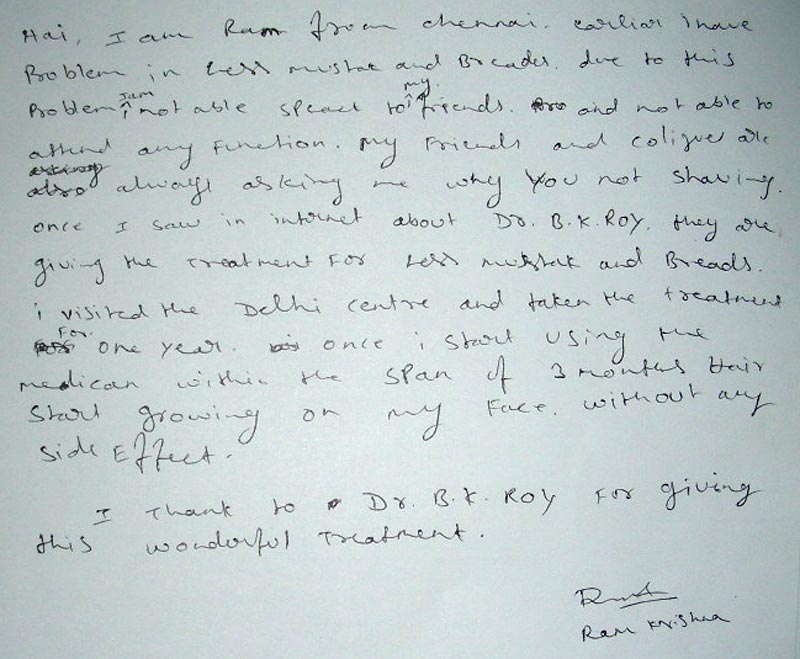 Hai, I am Ram from chennai. earliar i have
Problem in Less mustak and Breades. due to this
Problem I am not able speact to my friends. and not able to
attend any Function. My Friends and coligues are
always asking me why You not shaving.
once I saw in internet about Dr. B.K. ROY. they are
giving the treatment For Less mustak and Breads.
i visited the Delhi centre and taken the treatment
For one year. once i start using the
medican within the span of 3 months Hair
start growing on my Face. without any
side Effect.
I Thank to Dr. B.K. ROY For giving
this wonderful Treatment.
Ram Krishna